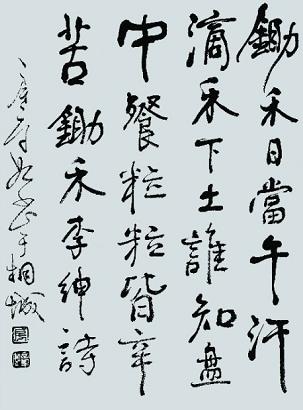 鋤禾日當午汗
滴禾下土誰知盘
中餐粒粒皆辛
苦鋤禾李紳詩
于桐城